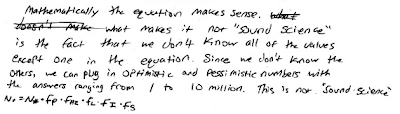 Mathematically the equation makes sense. what
doesn't make what makes it not "sound science"
is the fact that we don't know all of the values
except one in the equation. Since we don't know the
others, we can plug in optimistic and pessimistic numbers with
the answers ranging from 1 to 10 million. This is not "Sound Science"
N₀ = N* · fp · fHE · fL · fI · fS